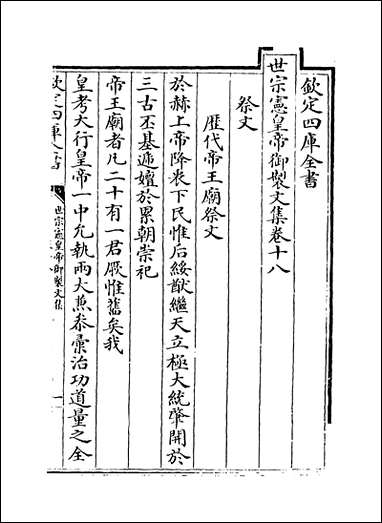 欽定四庫全書
世宗憲皇帝御製文集卷十八
祭文
歴代帝王廟祭文
於赫上帝降衷下民惟后綏猷繼天立極大統肇開於
三古丕基遞嬗於累朝崇祀
帝王廟者凡二十有一君厥惟舊矣我
皇考大行皇帝一中允執兩大無忝彚治功道量之全
欽定四庫全書
世宗憲皇帝御製文集
一